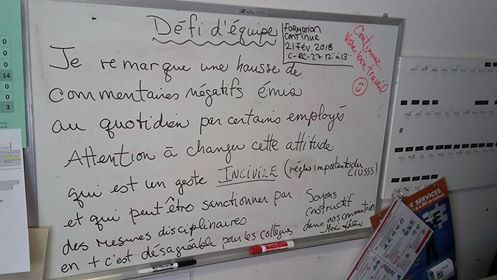 Défi d'équipe
FORMATION
CONTINUE
21 fév. 2018
C-RC-27 12 à 13
Continuez
Votre bon travail
Je remarque une hausse de
commentaires négatifs émis
au quotidien par certains employés
Attention à changer cette attitude
qui est un geste INCIVILE (règles importantes du
CIUSSS)
et qui peut être sanctionner par
des mesures disciplinaires
en + c'est désagréable pour les collègues
Soyons
constructif
dans nos commentaires
14
SERVICES